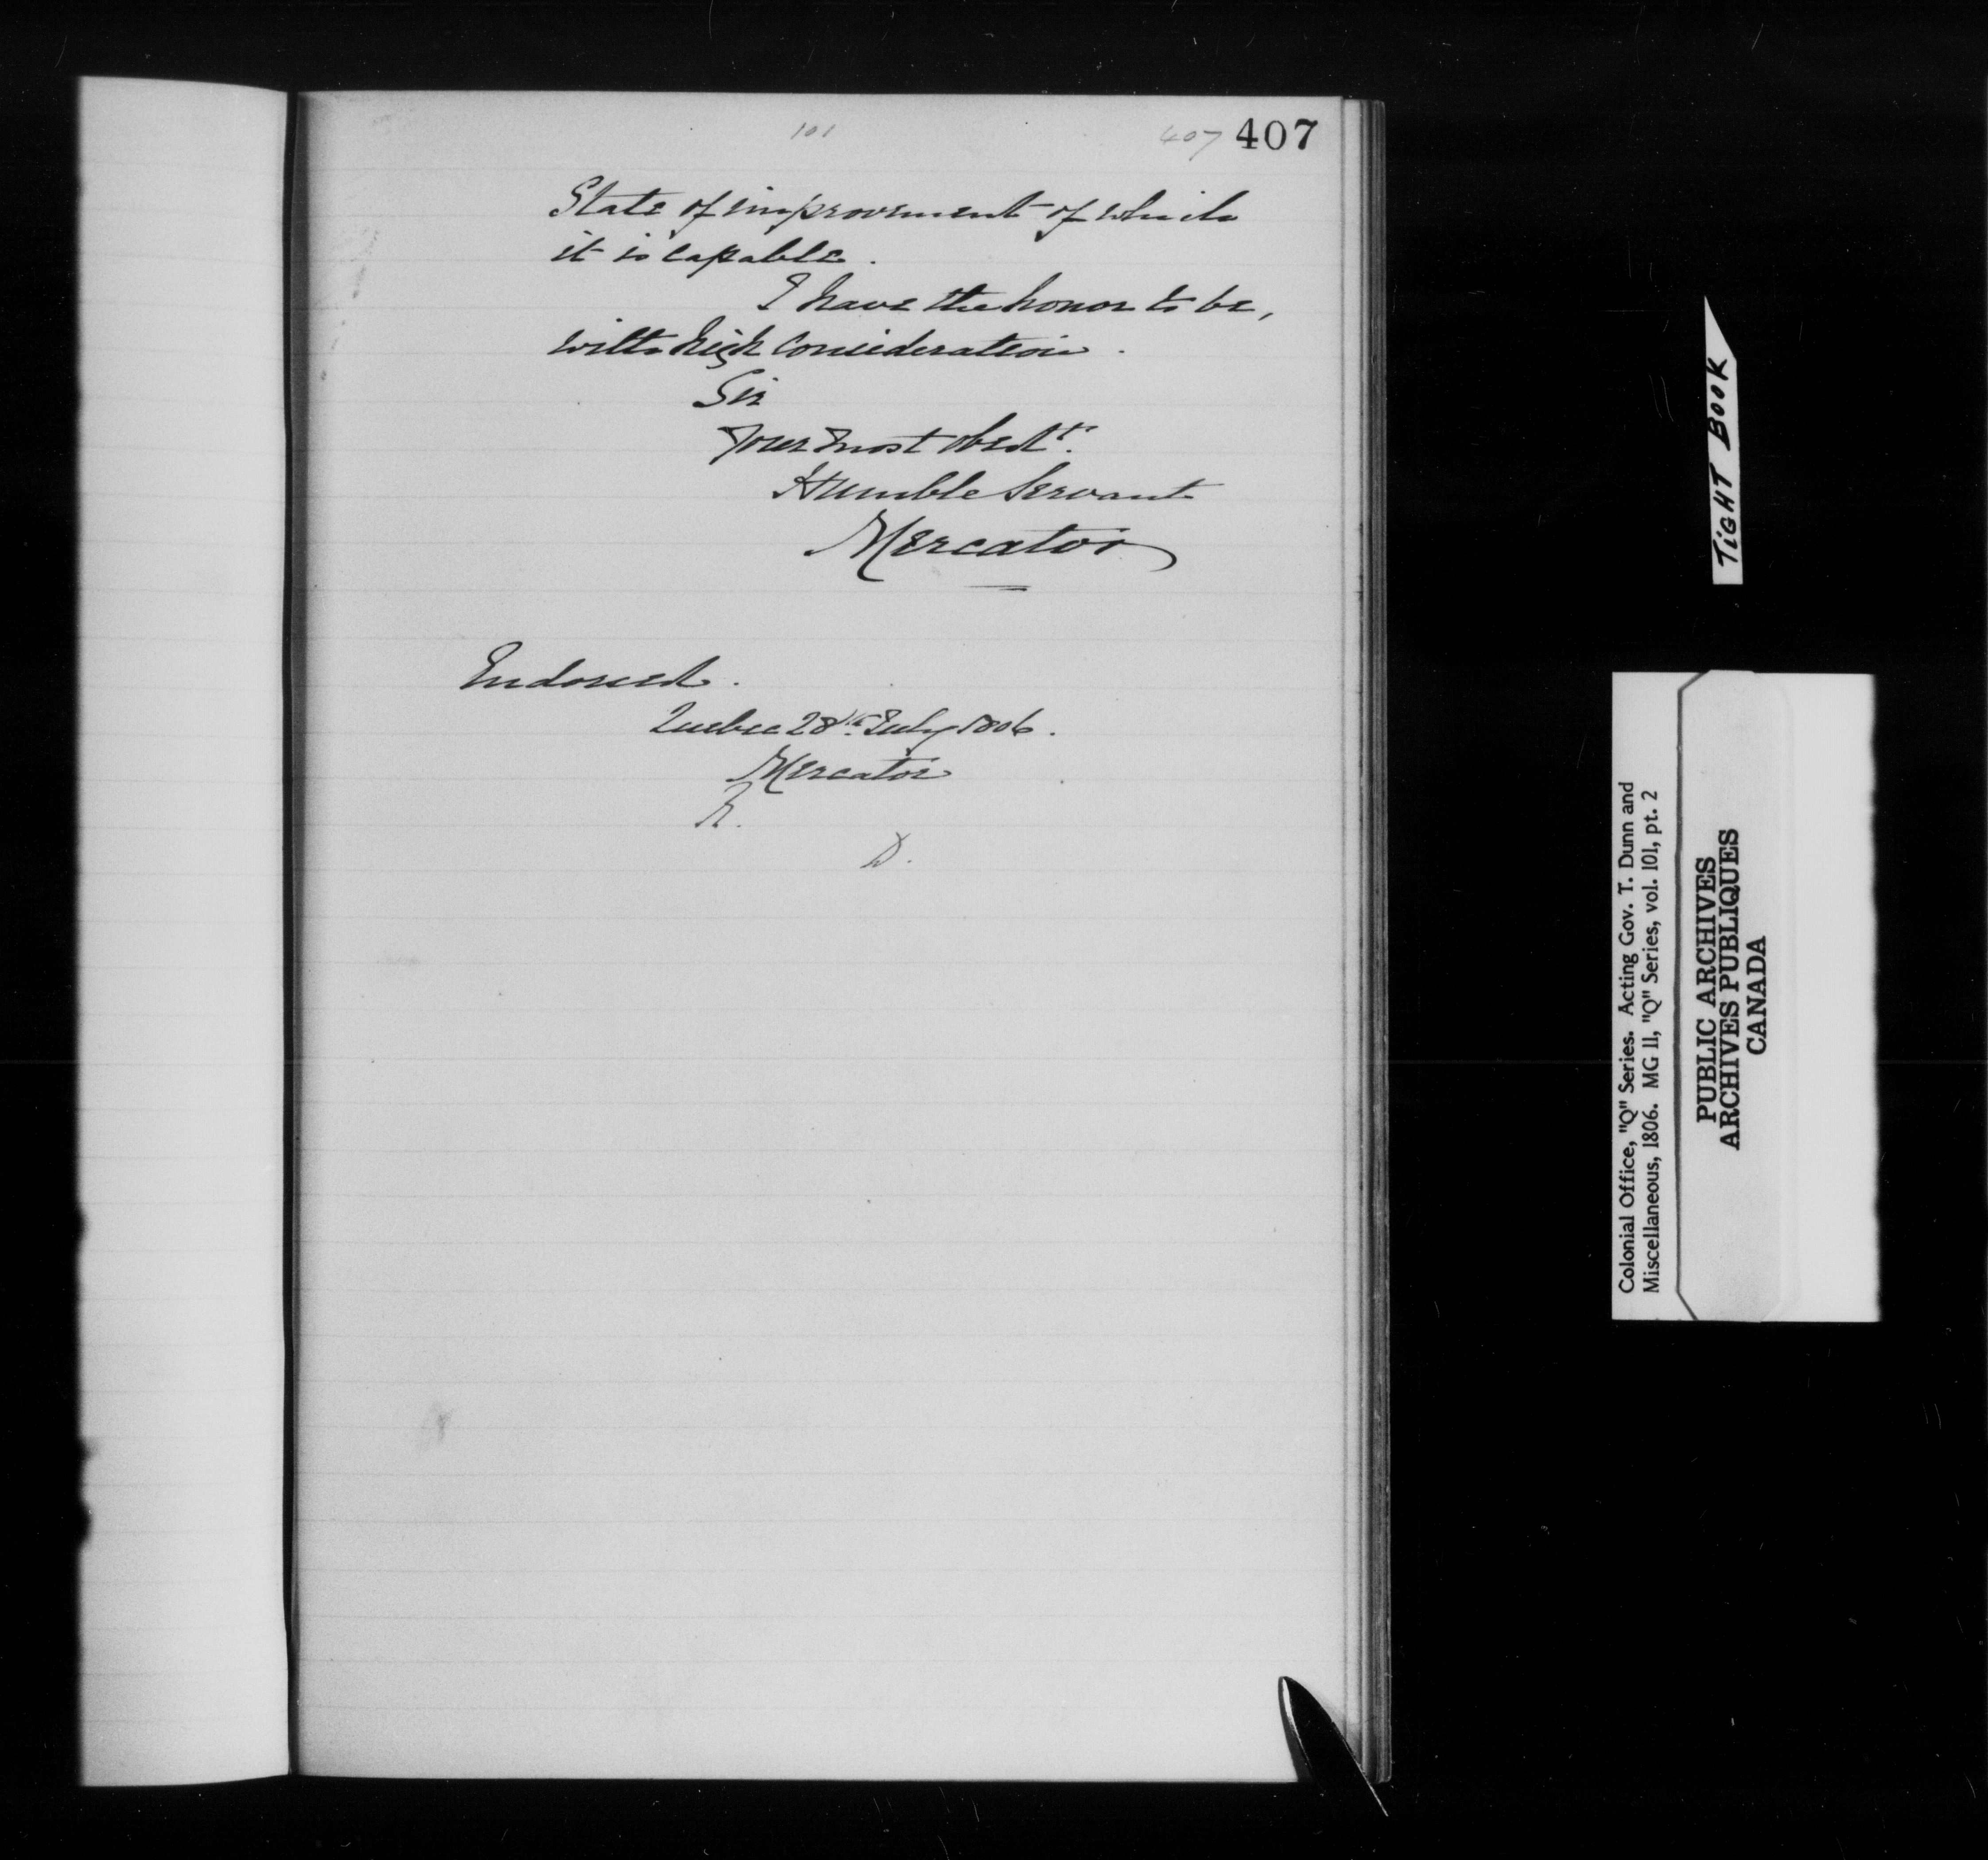 101
407 407
State of improvement of which
it is capable.
I have the honor to be,
with high consideration.
Sir
Your most obedt.
Humble Servant
Mercator
Endorsed.
Quebec 28th July 1806.
Mercator
R.
D.
TIGHT BOOK
Colonial Office, "Q" Series. Acting Gov. T. Dunn and
Miscellaneous, 1806. MG 11, "Q" Series, vol. 101, pt. 2
PUBLIC ARCHIVES
ARCHIVES PUBLIQUES
CANADA